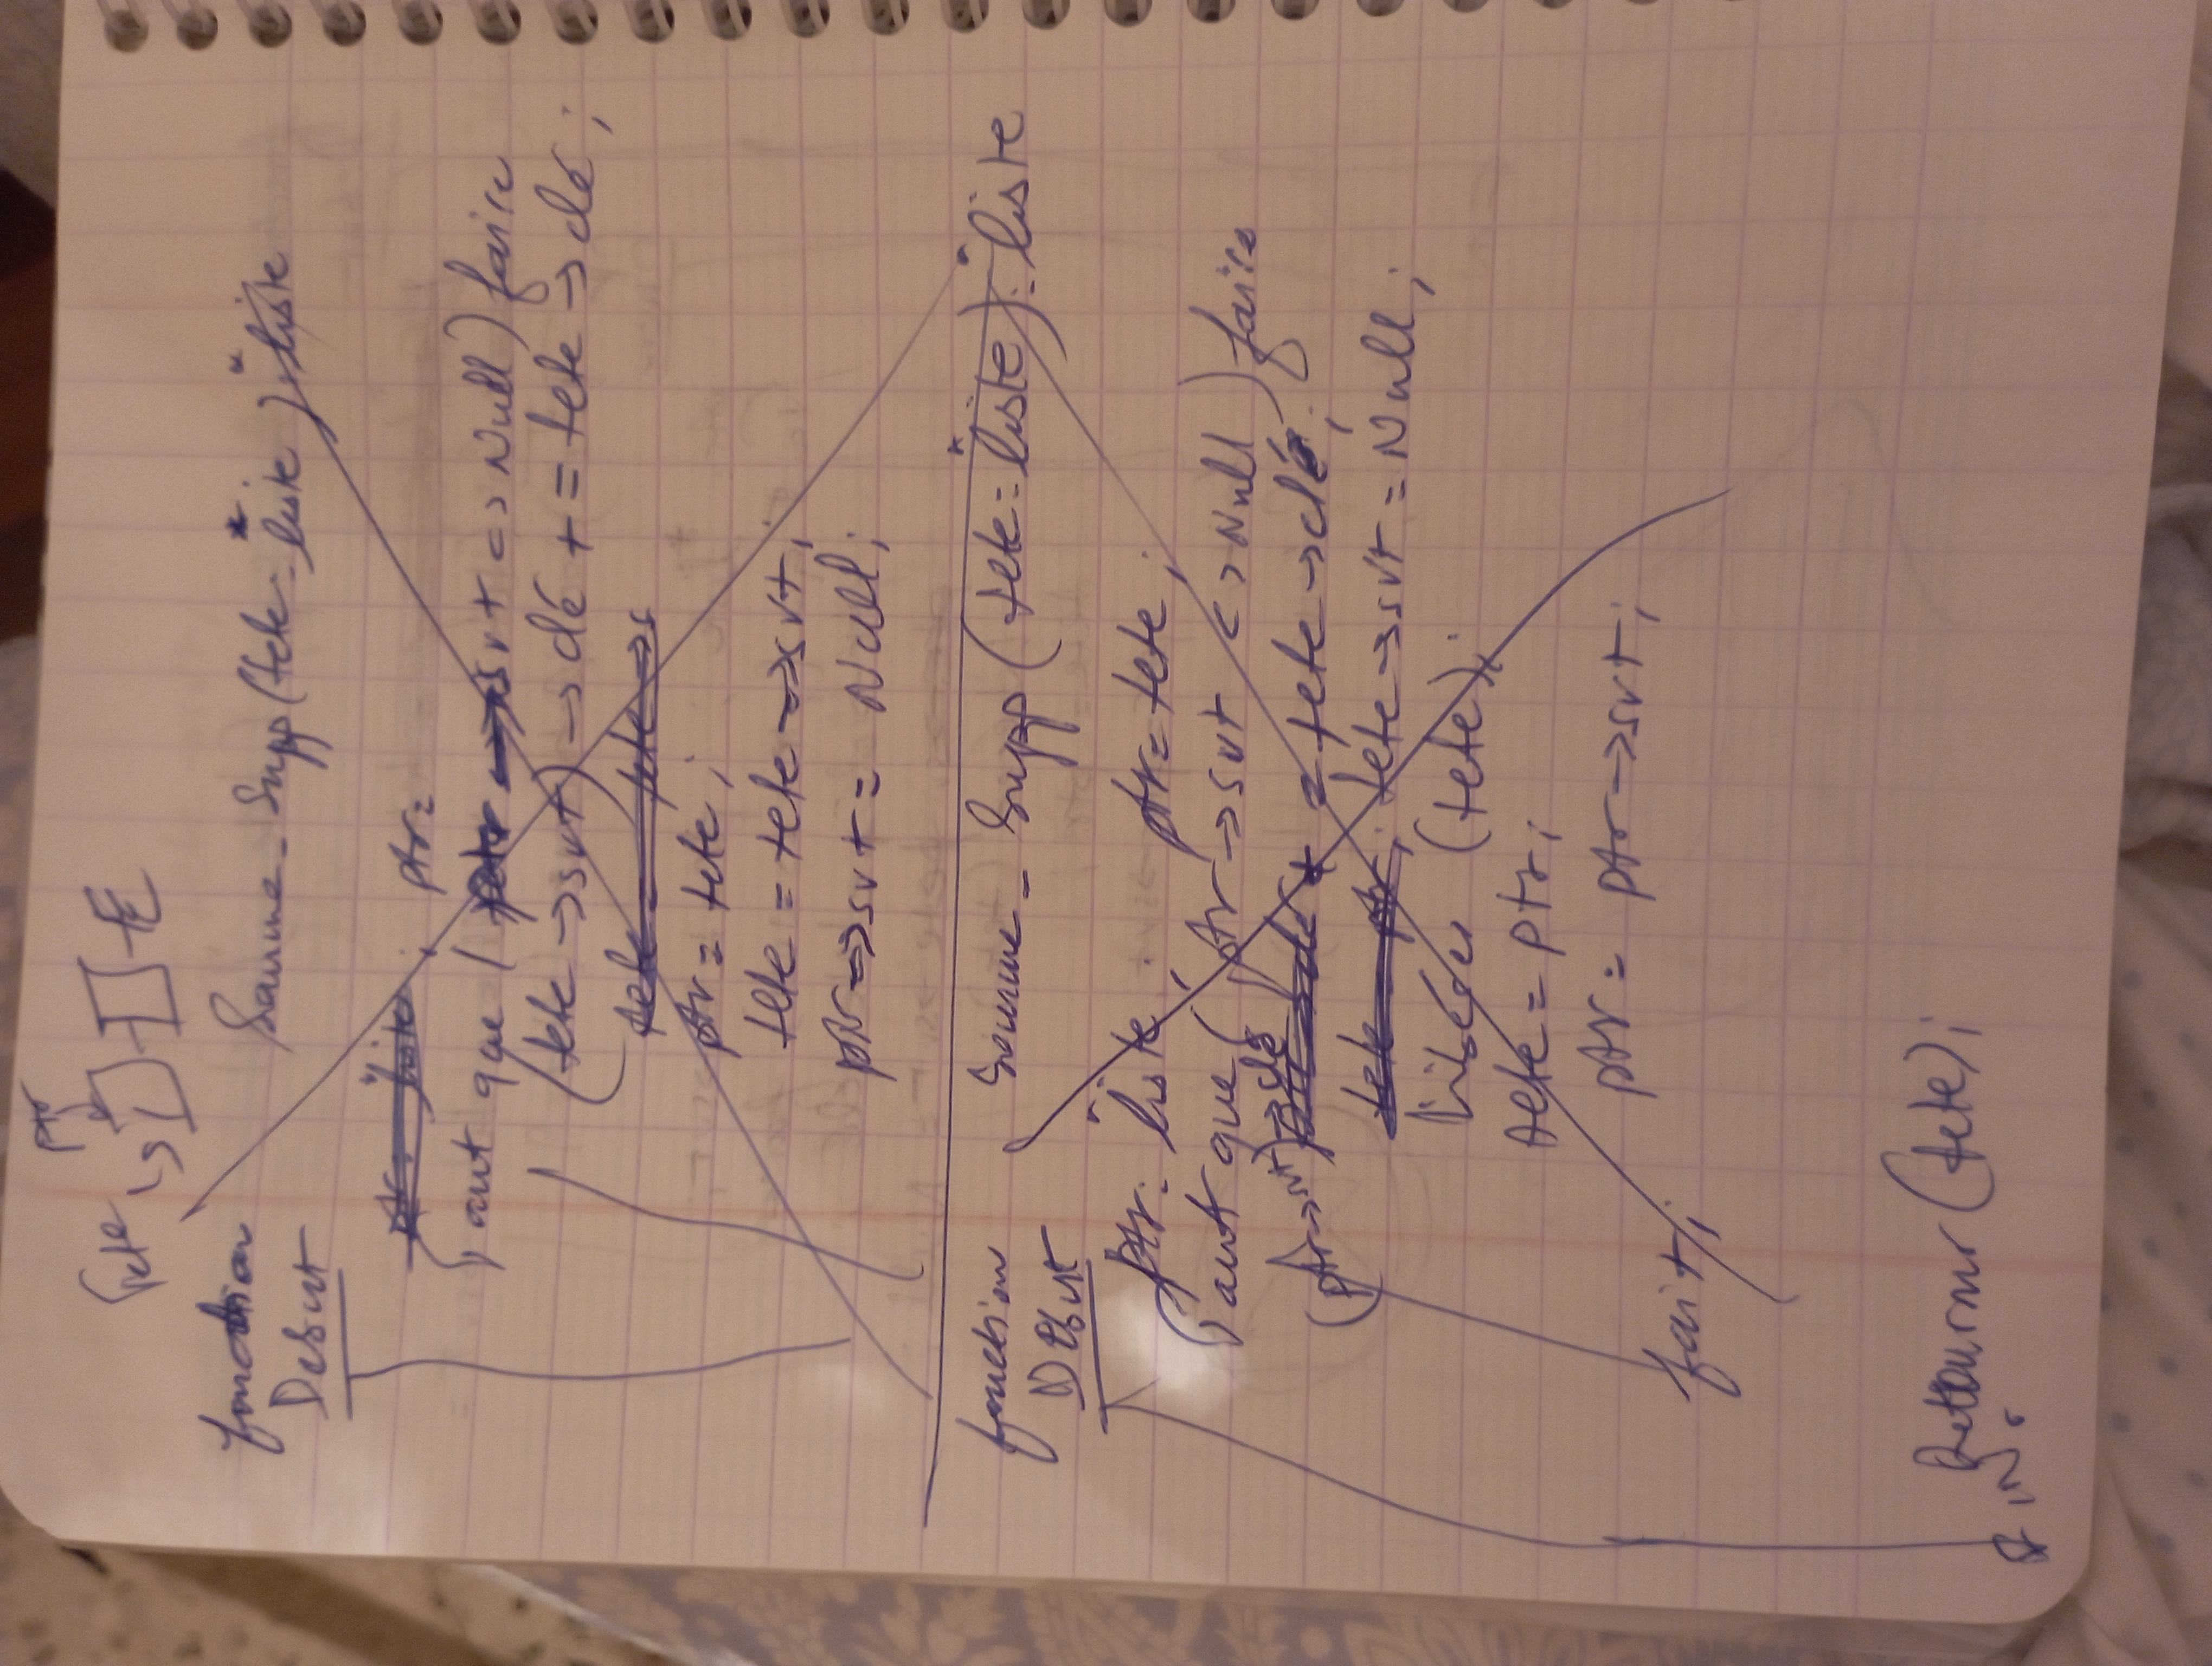 ptr
Tete
fonction Somme_Supp(tete: *liste): *liste
Debut
ptr: *liste; ptr=
Tant que (ptr->svt <> Null) faire
(tete->svt)->clé += tete->clé;
tete = tete->s
ptr = tete;
tete = tete->svt;
ptr->svt = Null;
fonction Somme_Supp(tete: *liste): *liste
Debut
ptr: *liste; ptr=tete;
Tant que (ptr->svt <> Null) faire
(ptr->svt)->clé = tete->clé;
tete ptr; tete->svt = Null;
libérer (tete);
tete = ptr;
ptr = ptr->svt;
fait;
Retourner (tete);
FIN.